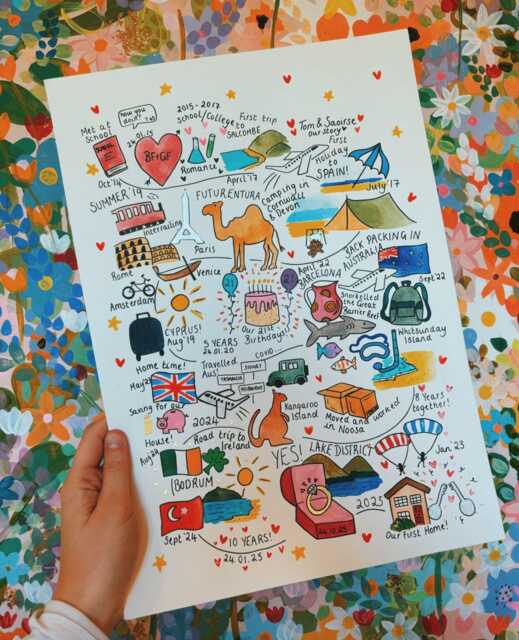 Met at
school
Oct '14
24.01.15
BF+GF
2015 - 2017
School/College
Romance
First trip
to
SALCOMBE
April '17
Tom & Saoirse
our story
First
Holiday
to
SPAIN!
July '17
SUMMER '19
interrailing
FUTURENTURA
Paris
Rome
Venice
Amsterdam
Camping in
Cornwall
& Devon
CYPRUS!
Aug '19
5 YEARS
24.01.20
21
21
Our 21st
Birthdays!
April '22
BARCELONA
BACK PACKING IN
AUSTRALIA
Sept '22
Snorkelled
the Great
Barrier Reef
Whitsunday
Island
COVID
Travelled
Aus!
SYDNEY
TASMANIA
MELBOURNE
Kangaroo
Island
Moved and worked
in Noosa
8 Years
together!
Jan '23
Home time!
Saving for our
House!
Aug 24
2024
Road trip to
Ireland
BODRUM
Sept '24
10 YEARS!
24.01.25
YES!
LAKE DISTRICT
2025
Our First Home!